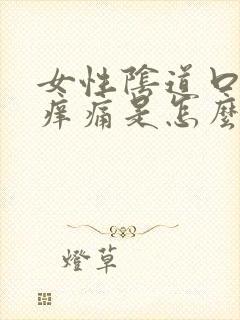 女性陰道口
痒痛是怎麼
燈草